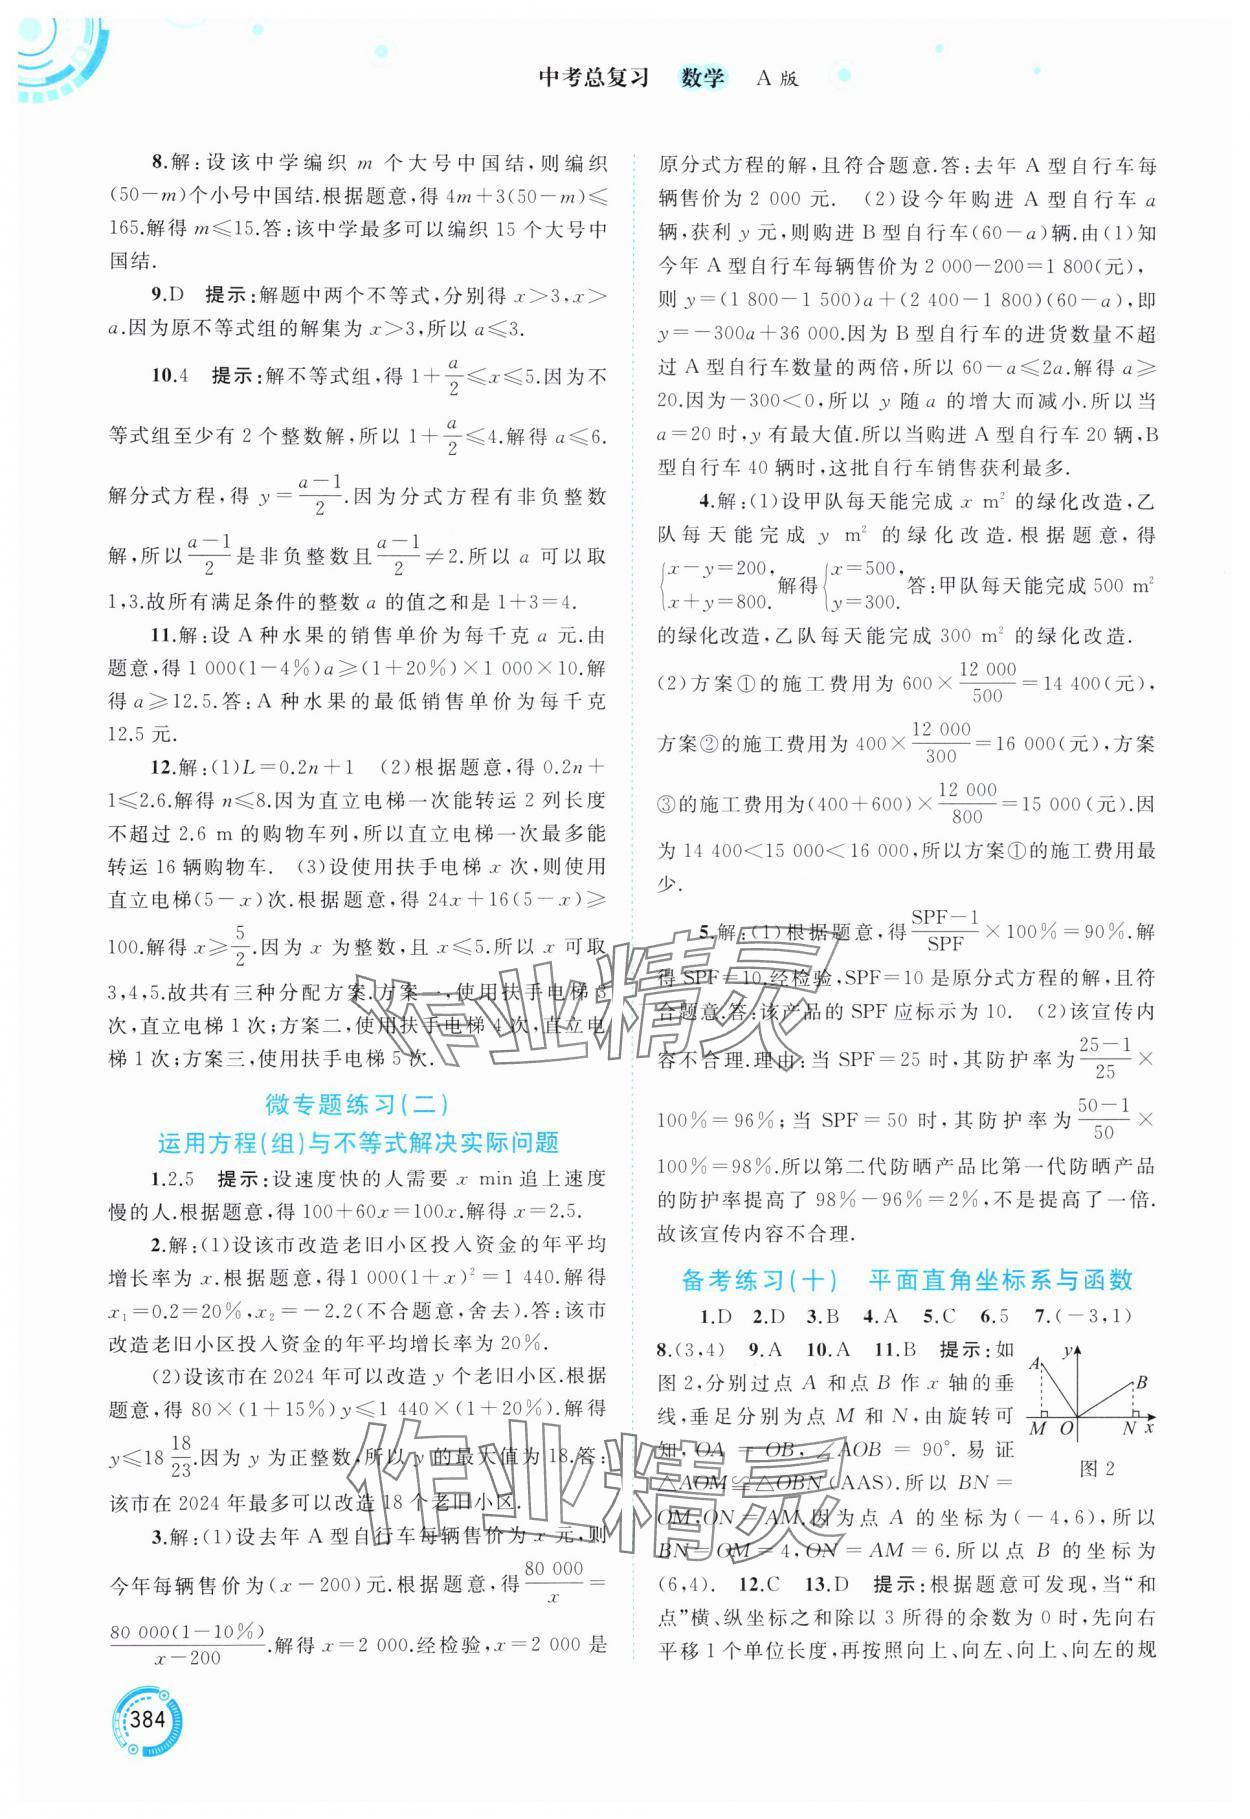 中考总复习 数学 A 版
8.解:设该中学编织 m 个大号中国结,则编织
(50-m)个小号中国结.根据题意,得 4m+3(50-m)≤
165.解得 m≤15.答:该中学最多可以编织 15 个大号中
国结.
9.D 提示:解题中两个不等式,分别得 x>3,x>
a.因为原不等式组的解集为 x>3,所以 a≤3.
10.4 提示:解不等式组,得 1+a/2≤x≤5.因为不
等式组至少有 2 个整数解,所以 1+a/2≤4.解得 a≤6.
解分式方程,得 y=(a-1)/2.因为分式方程有非负整数
解,所以(a-1)/2是非负整数且(a-1)/2≠2.所以 a 可以取
1,3.故所有满足条件的整数 a 的值之和是 1+3=4.
11.解:设 A 种水果的销售单价为每千克 a 元.由
题意,得 1 000(1-4%)a≥(1+20%)×1 000×10.解
得 a≥12.5.答:A 种水果的最低销售单价为每千克
12.5 元.
12.解:(1)L=0.2n+1 (2)根据题意,得 0.2n+
1≤2.6.解得 n≤8.因为直立电梯一次能转运 2 列长度
不超过 2.6 m 的购物车列,所以直立电梯一次最多能
转运 16 辆购物车. (3)设使用扶手电梯 x 次,则使用
直立电梯(5-x)次.根据题意,得 24x+16(5-x)≥
100.解得 x≥5/2.因为 x 为整数,且 x≤5.所以 x 可取
3,4,5.故共有三种分配方案.方案一,使用扶手电梯 3
次,直立电梯 1次;方案二,使用扶手电梯 4次,直立电
梯 1次;方案三,使用扶手电梯 5次.
微专题练习(二)
运用方程(组)与不等式解决实际问题
1.2.5 提示:设速度快的人需要 x min 追上速度
慢的人.根据题意,得 100+60x=100x.解得 x=2.5.
2.解:(1)设该市改造老旧小区投入资金的年平均
增长率为 x.根据题意,得1 000(1+x)²=1 440.解得
x₁=0.2=20%,x₂=-2.2(不合题意,舍去).答:该市
改造老旧小区投入资金的年平均增长率为 20%.
(2)设该市在 2024 年可以改造 y 个老旧小区.根据
题意,得 80×(1+15%)y≤1 440×(1+20%).解得
y≤18 18/23.因为 y 为正整数,所以 y 的最大值为 18.答:
该市在 2024 年最多可以改造 18 个老旧小区.
3.解:(1)设去年 A 型自行车每辆售价为 x 元,则
今年每辆售价为(x-200)元.根据题意,得80 000/x=
80 000(1-10%)/(x-200).解得 x=2 000.经检验,x=2 000 是
原分式方程的解,且符合题意.答:去年 A 型自行车每
辆售价为 2 000 元. (2)设今年购进 A 型自行车 a
辆,获利 y 元,则购进 B 型自行车(60-a)辆.由(1)知
今年 A 型自行车每辆售价为 2 000-200=1 800(元),
则 y=(1 800-1 500)a+(2 400-1 800)(60-a),即
y=-300a+36 000.因为 B 型自行车的进货数量不超
过 A 型自行车数量的两倍,所以 60-a≤2a.解得 a≥
20.因为-300<0,所以 y 随 a 的增大而减小.所以当
a=20 时,y 有最大值.所以当购进 A 型自行车 20 辆,B
型自行车 40 辆时,这批自行车销售获利最多.
4.解:(1)设甲队每天能完成 x m² 的绿化改造,乙
队每天能完成 y m² 的绿化改造.根据题意,得
{x-y=200, x+y=800. 解得{x=500, y=300. 答:甲队每天能完成 500 m²
的绿化改造,乙队每天能完成 300 m² 的绿化改造.
(2)方案①的施工费用为 600×12 000/500=14 400(元),
方案②的施工费用为 400×12 000/300=16 000(元),方案
③的施工费用为(400+600)×12 000/800=15 000(元).因
为 14 400<15 000<16 000,所以方案①的施工费用最
少.
5.解:(1)根据题意,得(SPF-1)/SPF×100%=90%.解
得 SPF=10.经检验,SPF=10 是原分式方程的解,且符
合题意.答:该产品的 SPF 应标示为 10. (2)该宣传内
容不合理.理由:当 SPF=25 时,其防护率为(25-1)/25×
100%=96%;当 SPF=50 时,其防护率为(50-1)/50×
100%=98%.所以第二代防晒产品比第一代防晒产品
的防护率提高了 98%-96%=2%,不是提高了一倍.
故该宣传内容不合理.
备考练习(十) 平面直角坐标系与函数
1.D 2.D 3.B 4.A 5.C 6.5 7.(-3,1)
8.(3,4) 9.A 10.A 11.B 提示:如
图 2,分别过点 A 和点 B 作 x 轴的垂
线,垂足分别为点 M 和 N,由旋转可
知,OA=OB,∠AOB=90°.易证
△AOM≌△OBN(AAS).所以 BN=
OM,ON=AM.因为点 A 的坐标为(-4,6),所以
BN=OM=4,ON=AM=6.所以点 B 的坐标为
(6,4). 12.C 13.D 提示:根据题意可发现,当“和
点”横、纵坐标之和除以 3 所得的余数为 0 时,先向右
平移 1 个单位长度,再按照向上、向左、向上、向左的规
A y B
M O N x
图 2
作业精灵
作业精灵
384